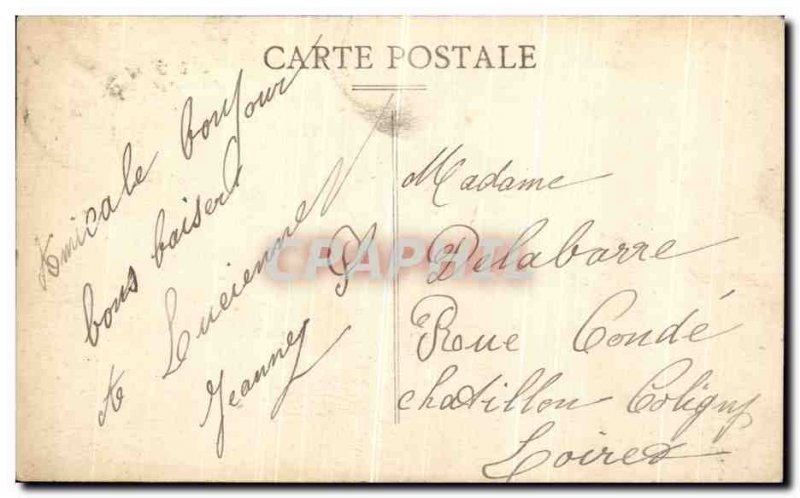 CARTE POSTALE
Amicale bonjour
bons baisers
A Lucienne
Jeanne D
Madame
Delabarre
Rue Condé
chatillon Coligny
Loiret
CPAPHIL